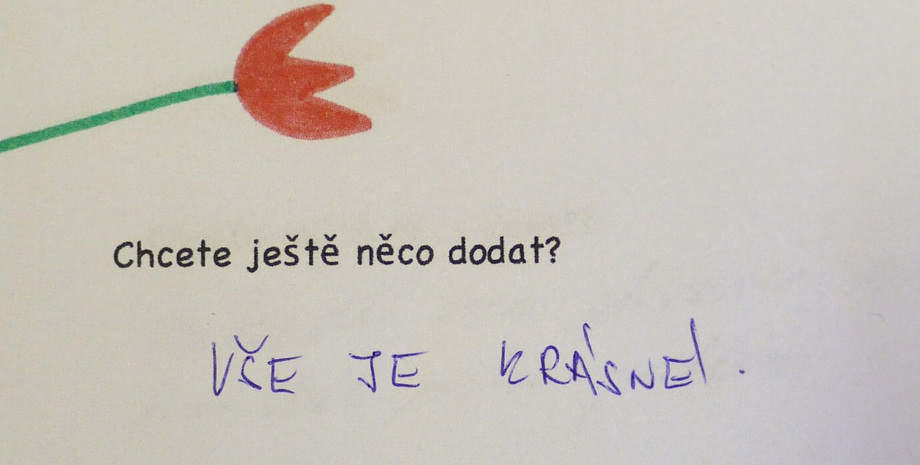 Chcete ještě něco dodat?
VŠE JE KRÁSNÉ.